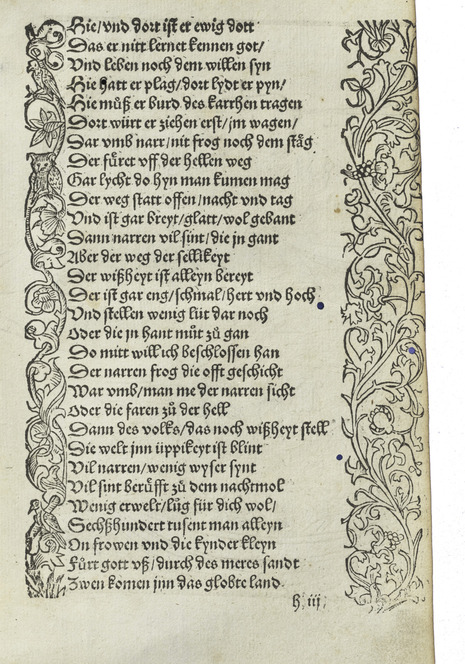 Hie/vnd dort ist er ewig dott
Das er nitt lernet kennen got/
Vnd leben noch dem willen syn
Hie hatt er plag/dort lydt er pyn/
Hie müß er burd des karrhen tragen
Dort würt er ziehen erst/jm wagen/
Dar vmb narr/nit frog noch dem stäg
Der füret vff der hellen weg
Gar lycht do hyn man kumen mag
Der weg statt offen/nacht vnd tag
Vnd ist gar breyt/glatt/wol gebant
Dann narren vil sint/die jn gant
Aber der weg der sellikeyt
Der wißheyt ist alleyn bereyt
Der ist gar eng/schmal/hert vnd hoch
Vnd stellen wenig lüt dar noch
Oder die jn hant müt zů gan
Do mitt will ich beschlossen han
Der narren frog die offt geschicht
War vmb/man me der narren sicht
Oder die faren zů der hell
Dann des volks/das noch wißheyt stell
Die welt jnn üppikeyt ist blint
Vil narren/wenig wyser synt
Vil sint berüfft zů dem nachtmol
Wenig erwelt/lůg für dich wol/
Sechßhundert tusent man alleyn
On frowen vnd die kynder kleyn
Fůrt gott vß/durch des meres sandt
Zwen komen jnn das globte land.
h iij